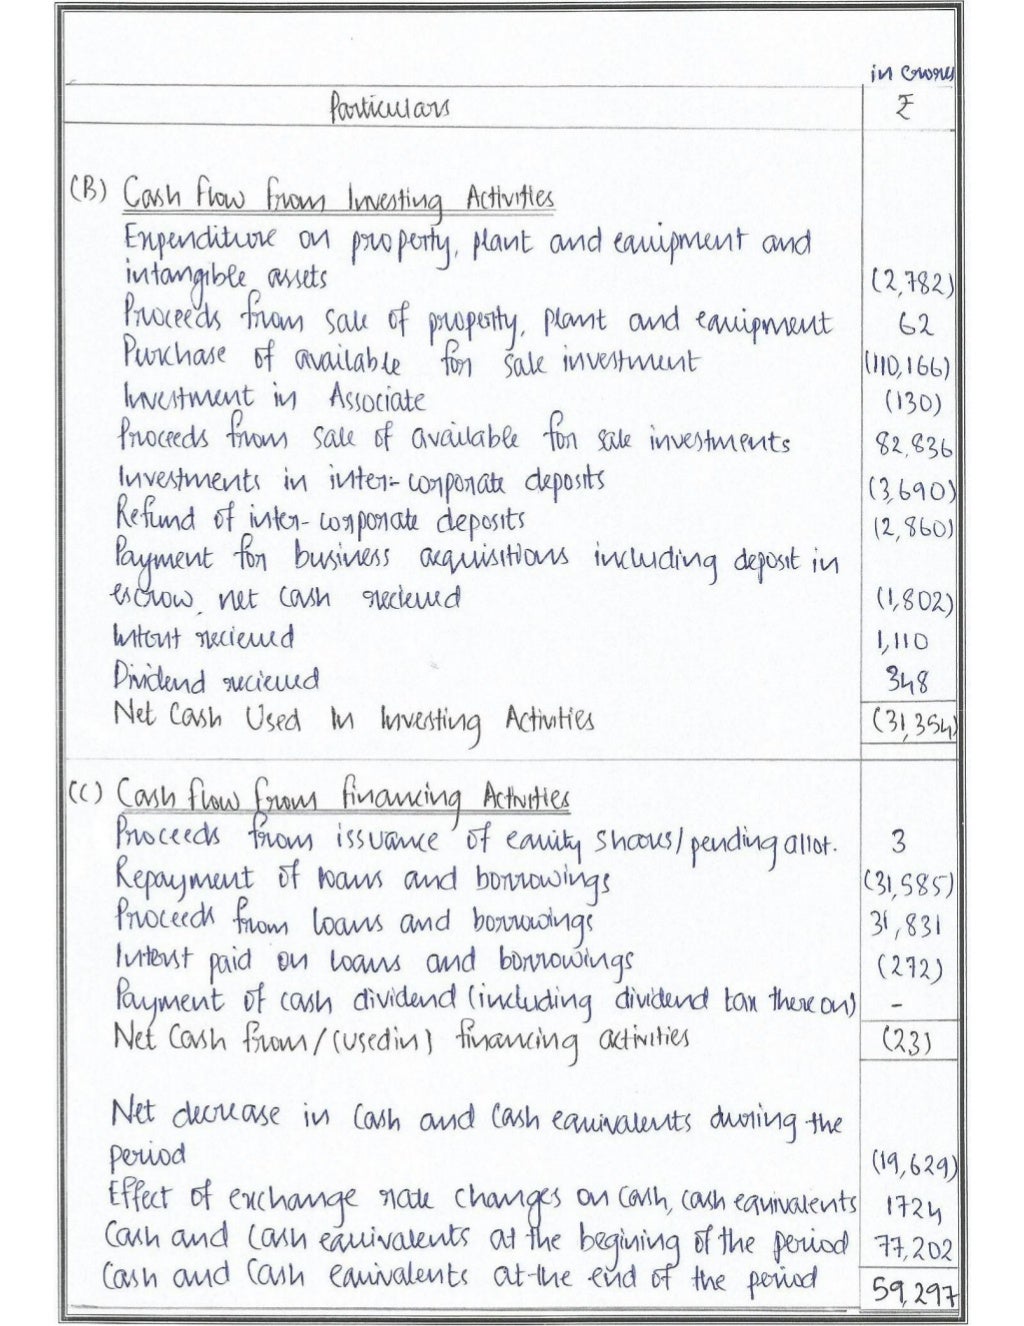 in crores
Particulars ₹
(B) Cash flow from Investing Activities
Expenditure on property, plant and equipment and
intangible assets (2,782)
Proceeds from sale of property, plant and equipment 62
Purchase of available for sale investment (110,166)
Investment in Associate (130)
Proceeds from sale of available for sale investments 82,836
Investments in inter-corporate deposits (3,690)
Refund of inter-corporate deposits (2,860)
Payment for business acquisitions including deposit in
escrow, net cash recieved (1,802)
Interest recieved 1,110
Dividend recieved 348
Net Cash Used In Investing Activities (31,354)
(C) Cash flow from financing Activities
Proceeds from issuance of equity shares/pending allot. 3
Repayment of loans and borrowings (31,585)
Proceeds from loans and borrowings 31,831
Interest paid on loans and borrowings (272)
Payment of cash dividend (including dividend tax there on) -
Net Cash from/(used in) financing activities (23)
Net decrease in Cash and Cash equivalents during the
period (19,629)
Effect of exchange rate changes on cash, cash equivalents 1724
Cash and Cash equivalents at the begining of the period 77,202
Cash and Cash equivalents at the end of the period 59,297